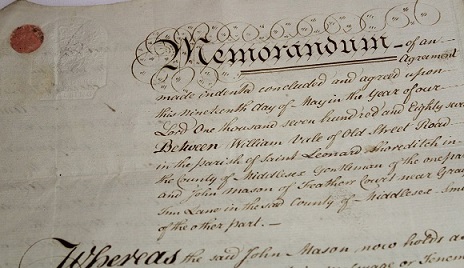 Memorandum of an
Agreament
made indented concluded and agreed upon
this Nineteenth day of May in the Year of our
Lord One thousand seven hundred and Eighty
Between William Vale of Old Street Road
in the parish of Saint Leonard Shoreditch in
the County of Middlesex Gentleman of the one part
and John Mason of Feathers Court near Gray's
Inn Lane in the said County of Middlesex
of the other part.
Whereas the said John Mason now holds a
or Tenem